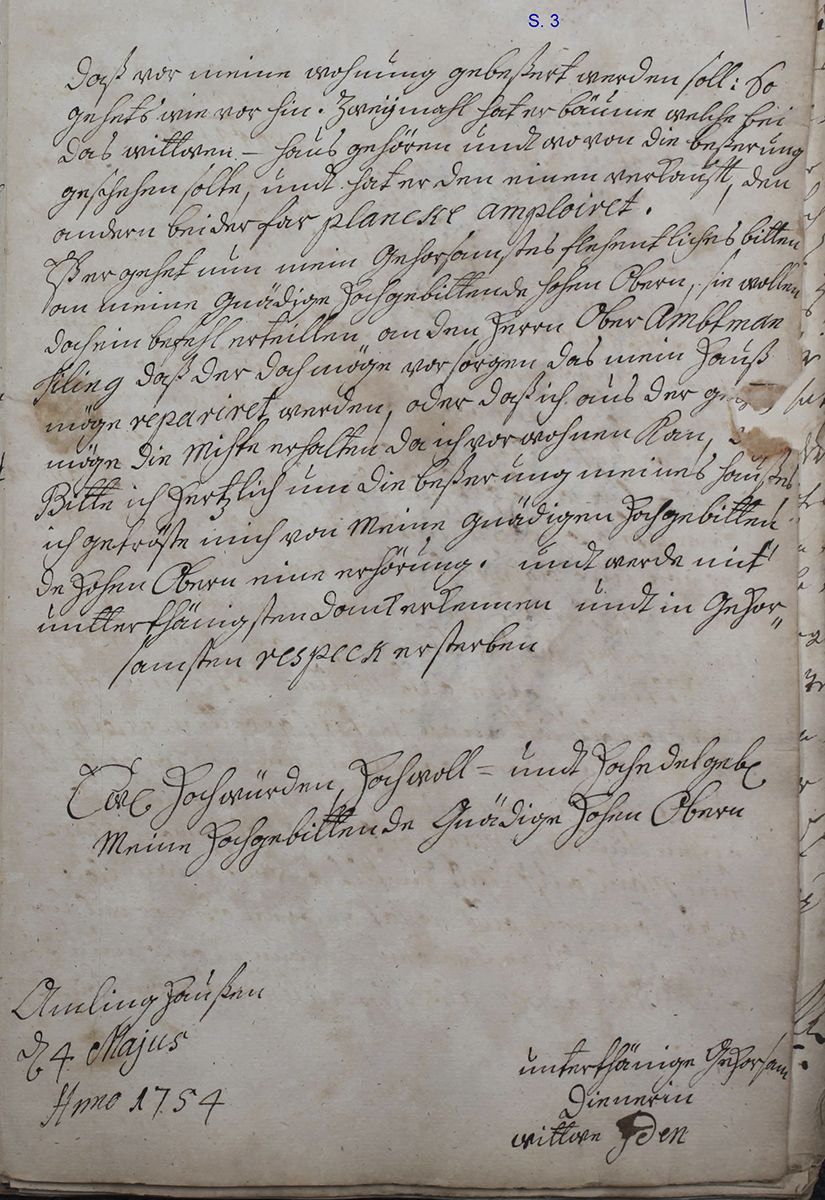 S. 3
daß vor meine wohnung gebeßert werden soll: So
gehets wie vor hin. Zweymahl hat er bäume welche bei
das wittwen - hauß gehören undt wo von die beßerung
geschehen solte, undt hat er den einen verkaufft, den
andern bei der far plancke amploiret.
Eß er gehet nun mein Gehorsamstes flehentliches bitten
an meine Gnädige Hochgebittende hohen Obern, sie wollen
doch ein befehl erteillen an den Herrn Ober Ambtman
daß der doch möge vor sorgen das mein Hauß
möge repariret werden, oder daß ich aus der
möge die Mihte erhalten da ich vor wohnen kan,
Bitte ich Hertzlich um die beßerung meines haußes
ich getröste mich von Meine gnädigen Hochgebitten
de Hohen Obern eine erhörung. undt werde mit
untterthänigsten danck erkennen undt in Gehor„
samsten respeck ersterben
Ew Hochwürden, Hochwoll = undt Hochedelgeb
Meine Hochgebittende Gnädige Hohen Obern
Amlinghaußen
d 4 Majus
Anno 1754
unterthänige Gehorsam
Dienerin
wittwe